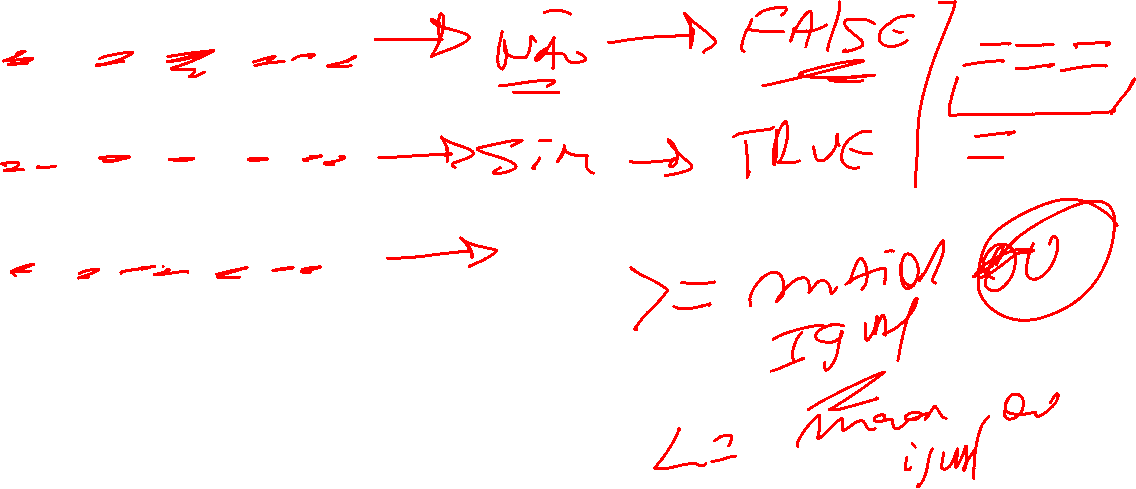 → NÃO → FALSE
===
→ Sim → TRUE
=
→
>= maior ou
Igual
<= menor ou
igual